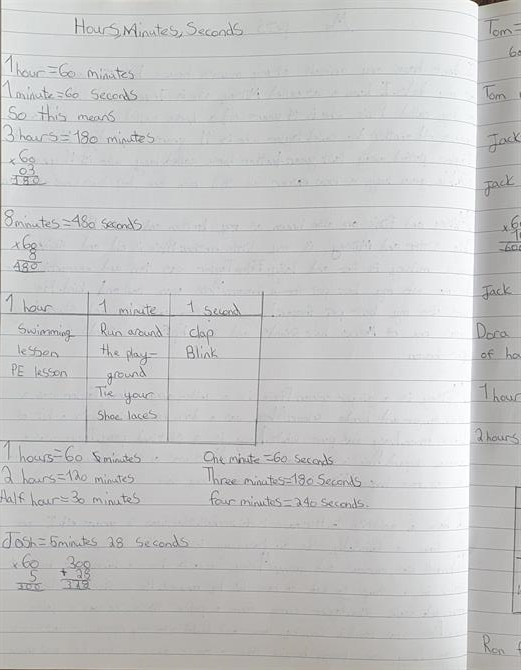 Hours, Minutes, Seconds
1 hour=60 minutes
1 minute=60 seconds
So this means
3 hours=180 minutes
×60
03
180
8 minutes=480 seconds
×60
8
480
1 hour | 1 minute | 1 second
Swimming | Run around | clap
lesson | the play- | Blink
PE lesson | ground
Tie your
Shoe laces
1 hours=60 minutes. One minute=60 seconds
2 hours=120 minutes Three minutes=180 Seconds.
Half hour=30 minutes four minutes=240 seconds.
Josh=5minutes 28 seconds
×60 300
5 +28
300 328
Tom=
60
Tom
Jack
Jack
×6
600
Jack
Dora
of ho
1 hour
2 hours
Ron